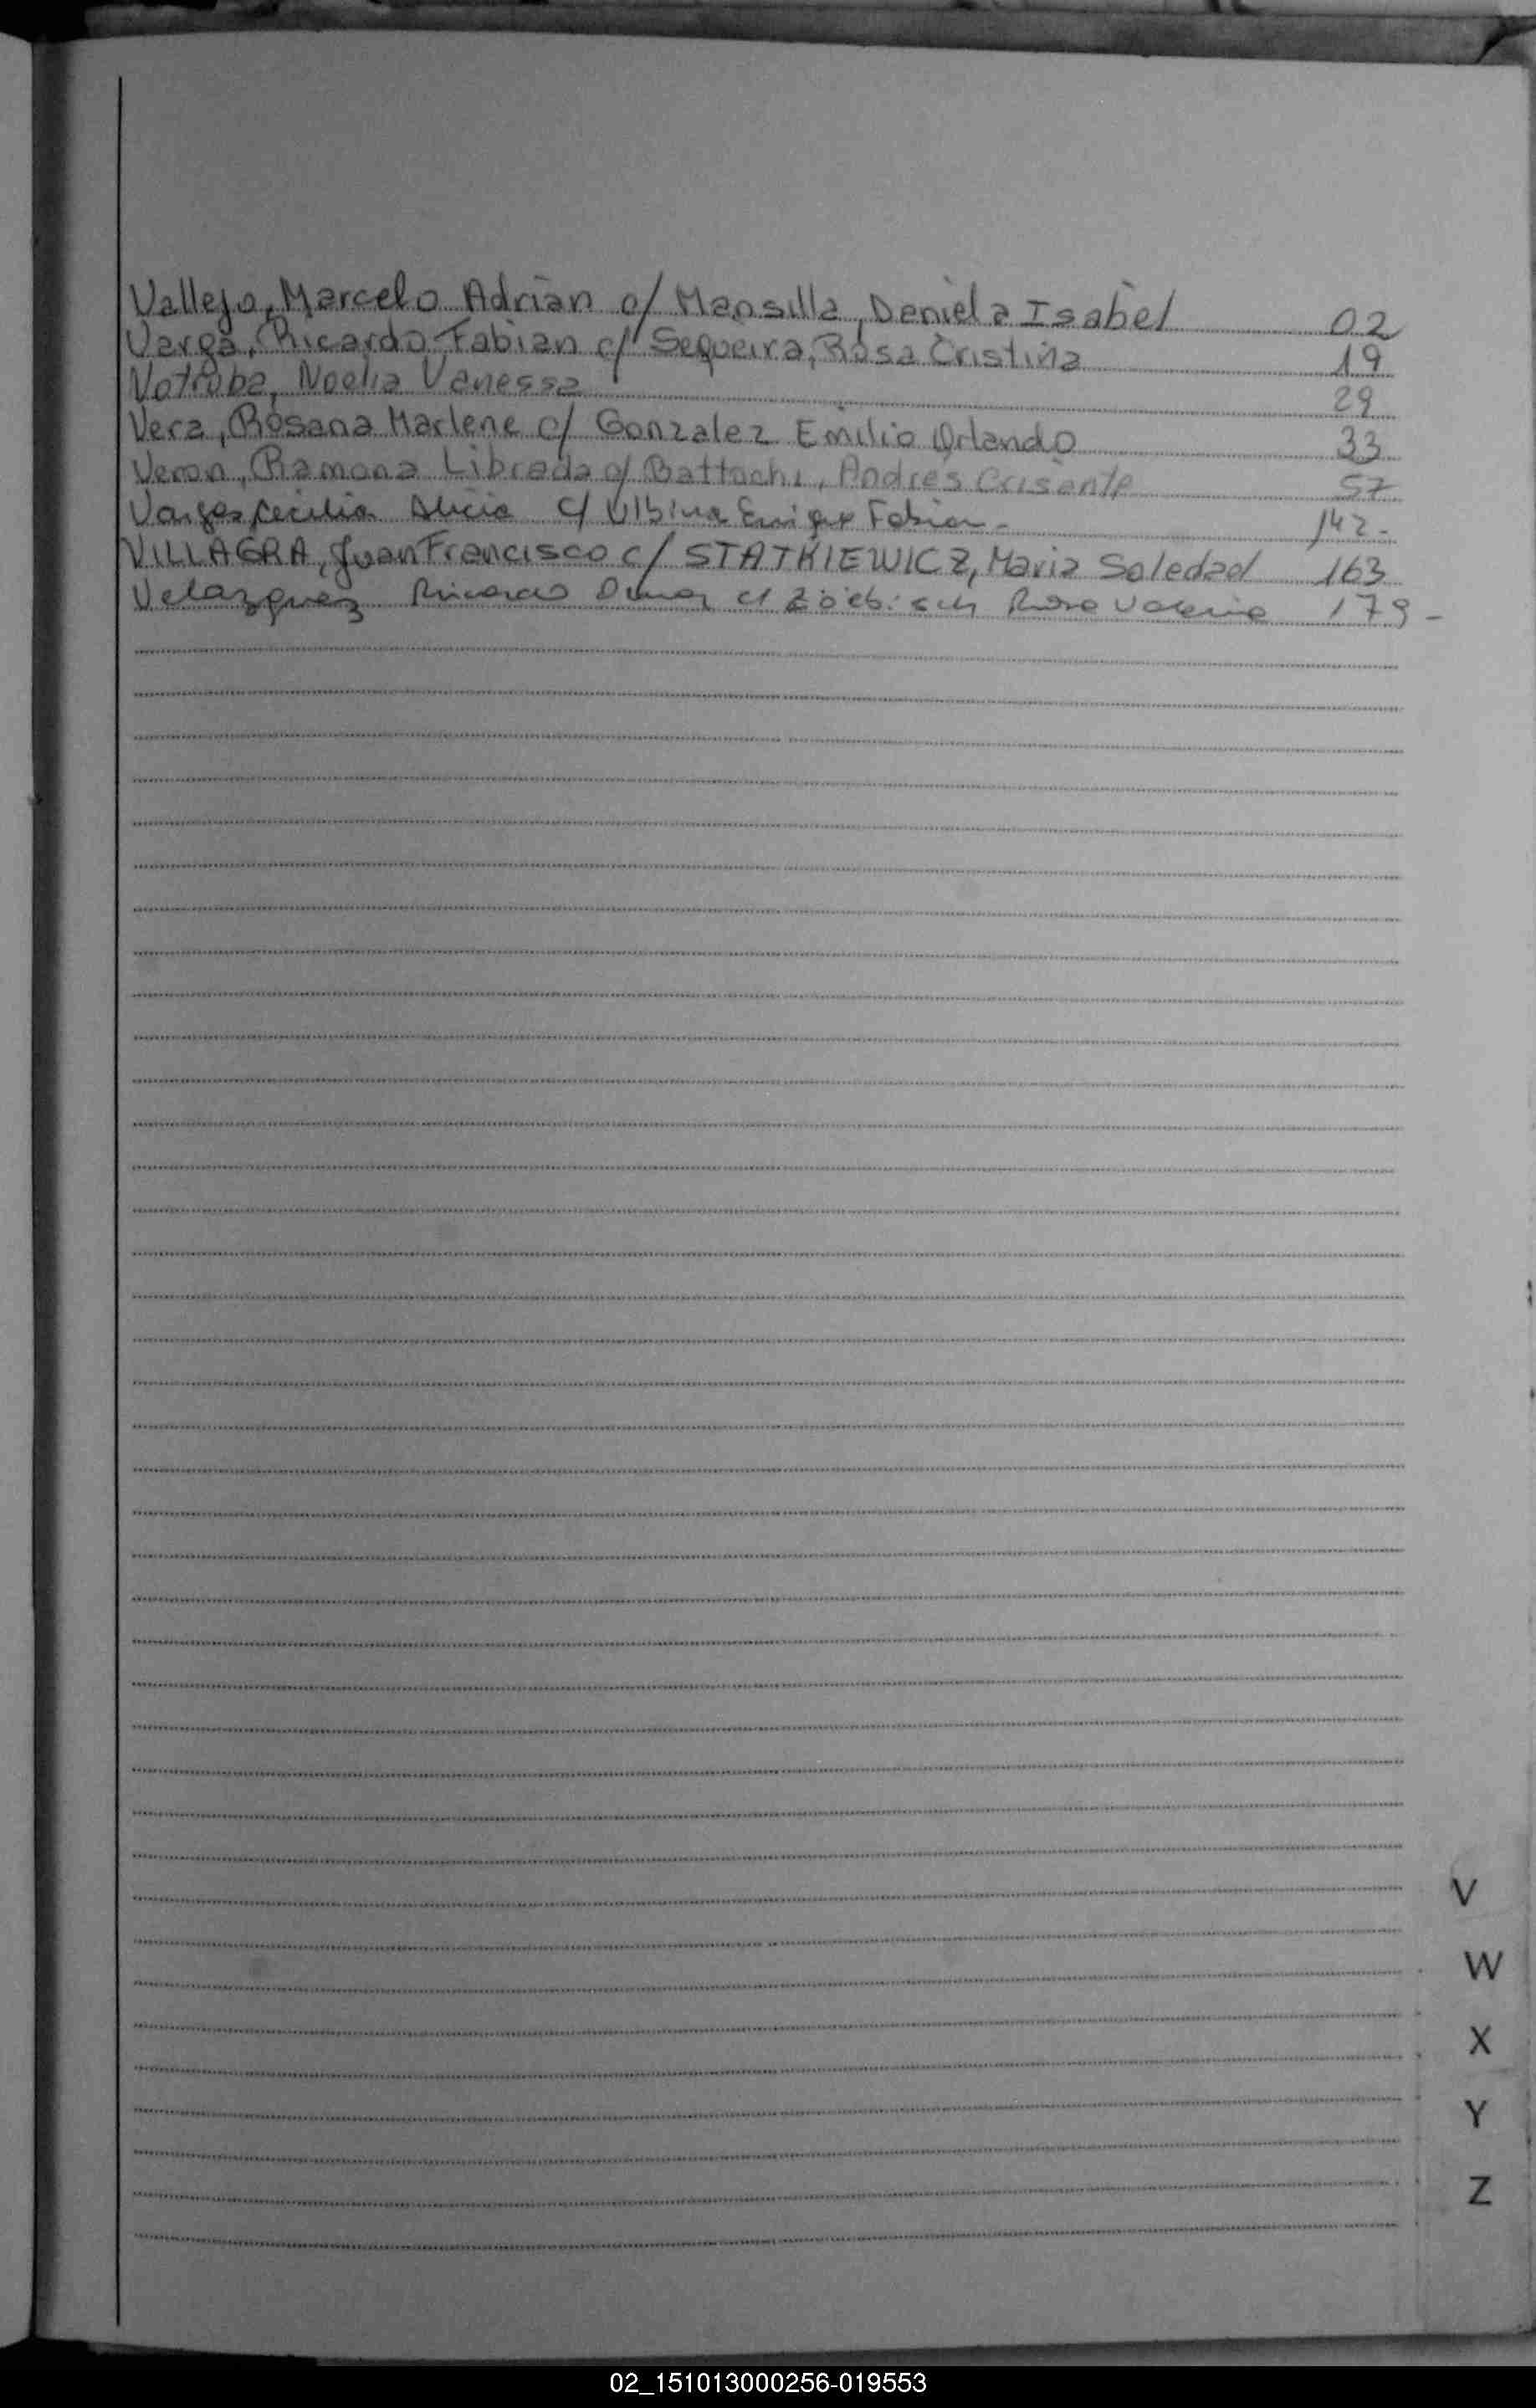 Vallejo, Marcelo Adrian c/ Mansilla, Daniela Isabel 02
Varga, Ricardo Fabian c/ Sequeira, Rosa Cristina 19
Votruba, Noelia Vanessa 29
Vera, Rosana Marlene c/ Gonzalez Emilio Orlando 33
Veron, Ramona Librada c/ Battochi, Andrés Crisante 57
Vargas, Cecilia Alicia c/ Enrique Fabian - 142-
VILLAGRA, Juan Francisco c/ STATKIEWICZ, Maria Soledad 163
Velazquez Ricardo c/ Zöebisch Rosa Valeria 179-
V
W
X
Y
Z
02_151013000256-019553